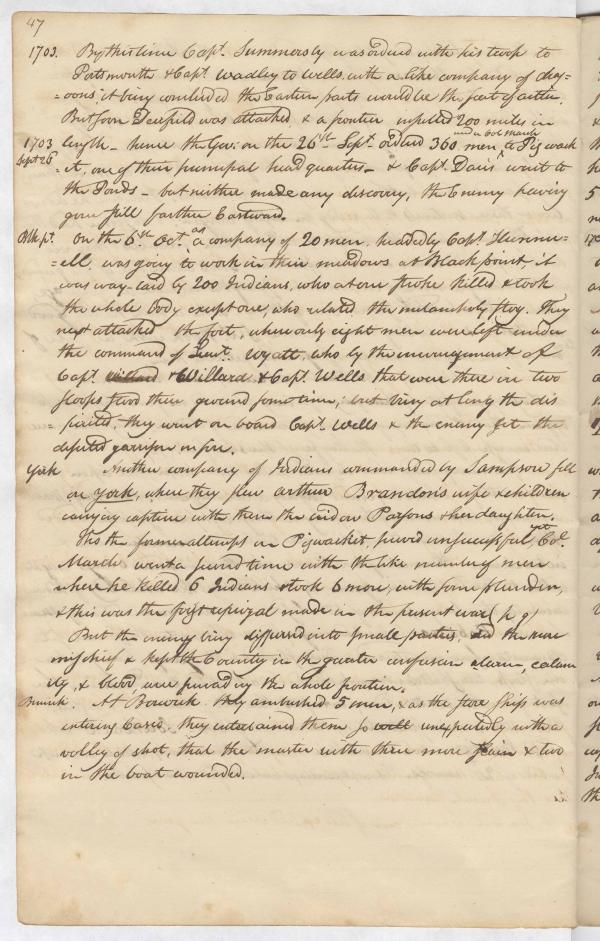 47
1703. By this time Capt. Summersby was ordered with his troop to
Portsmouth & Capt. Wadley to Wells, with a like company of drag=
=oons; it being concluded the Eastern parts would be the seat of action.
But soon Deerfield was attacked, & a frontier infested 200 miles in
1703 length - hence the Gov. on the 26th Sept. ordered 360 men, to Pigwack
under Col March
Sept 26
=it, one of their principal head quarters - & Capt. Davis went to
the Ponds - but neither made any discovery, the Enemy having
gone still farther Eastward.
Blk pt. On the 6th Oct. as a company of 20 men, headed by Capt. Hunnew=
=ell, was going to work in their meadows at Black point, it
was way-laid by 200 Indians, who at one stroke killed & took
the whole body except one, who related the melancholy story. They
next attacked the fort, where only eight men were left under
the command of Lieut. Wyatt, who by the encouragement of
Capt. Willard & Willard & Capt. Wells that were there in two
sloops stood their ground sometime; but being at length dis
=pirited, they went on board Capt. Wells & the enemy set the
deserted garrison on fire.
York Another company of Indians commanded by Sampson fell
on York, where they slew Arthur Brandon's wife & children
carrying captive with them the widow Parsons & her daughter.
Tho the former attempt on Pigwacket, proved unsuccessful, yet Col.
March went a second time with the like number of men
where he killed 6 Indians & took 6 more, with some plunder,
& this was the first reprizal made in the present war (p 9)
But the enemy being dispersed into small parties, did the more
mischief & kept the Country in the greater confusion alarm, calam
ity, & blood, were pervading the whole frontier.
Berwick. At Berwick they ambushed 5 men, & as the store ships was
entering Casco, they entertained them so well unexpectedly with a
volley of shot, that the master with three more slain & two
in the boat wounded.